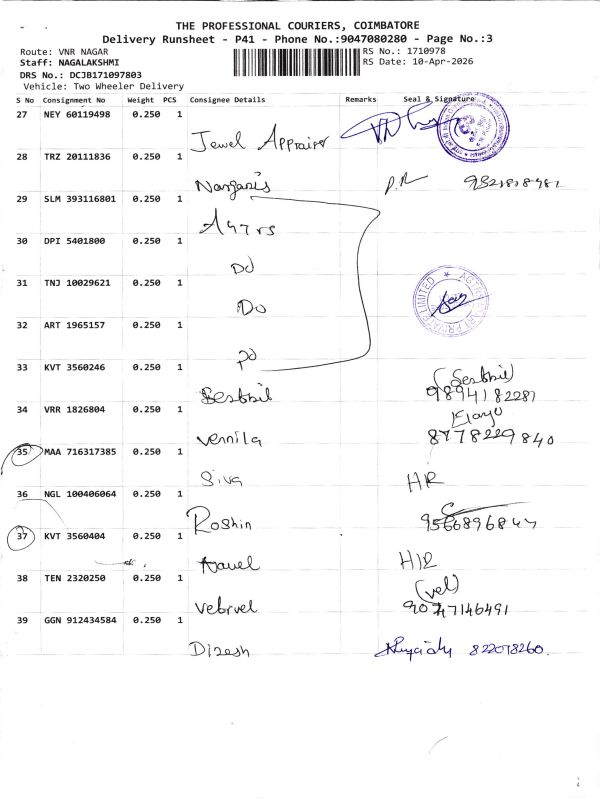 THE PROFESSIONAL COURIERS, COIMBATORE
Delivery Runsheet - P41 - Phone No.:9047080280 - Page No.:3
Route: VNR NAGAR
RS No.: 1710978
Staff: NAGALAKSHMI
RS Date: 10-Apr-2026
DRS No.: DCJB171097803
Vehicle: Two Wheeler Delivery
S No Consignment No Weight PCS Consignee Details Remarks Seal & Signature
27 NEY 60119498 0.250 1
Jewel Appraiser
28 TRZ 20111836 0.250 1
Nargaris
29 SLM 393116801 0.250 1
30 DPI 5401800 0.250 1
Do
31 TNJ 10029621 0.250 1
Do
32 ART 1965157 0.250 1
33 KVT 3560246 0.250 1
9894182281
34 VRR 1826804 0.250 1
Vennila 8778229840
35 MAA 716317385 0.250 1
Siva
36 NGL 100406064 0.250 1
Roshin
37 KVT 3560404 0.250 1
38 TEN 2320250 0.250 1
(vel)
9047146491
39 GGN 912434584 0.250 1
Dinesh